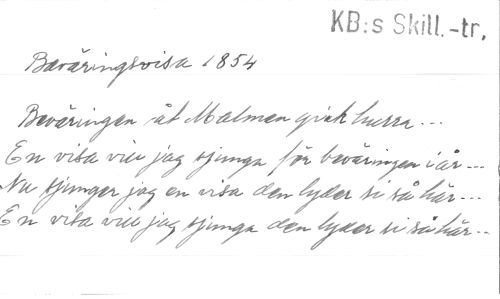 KB:s Skill.-tr.
Beväringsvisa 1854
Beväringen åt Malmen gick hurra...
En visa vill jag sjunga för beväringen i år...
Nu sjunger jag en visa den lyder si så här...
En visa vill jag sjunga den lyder si så här...